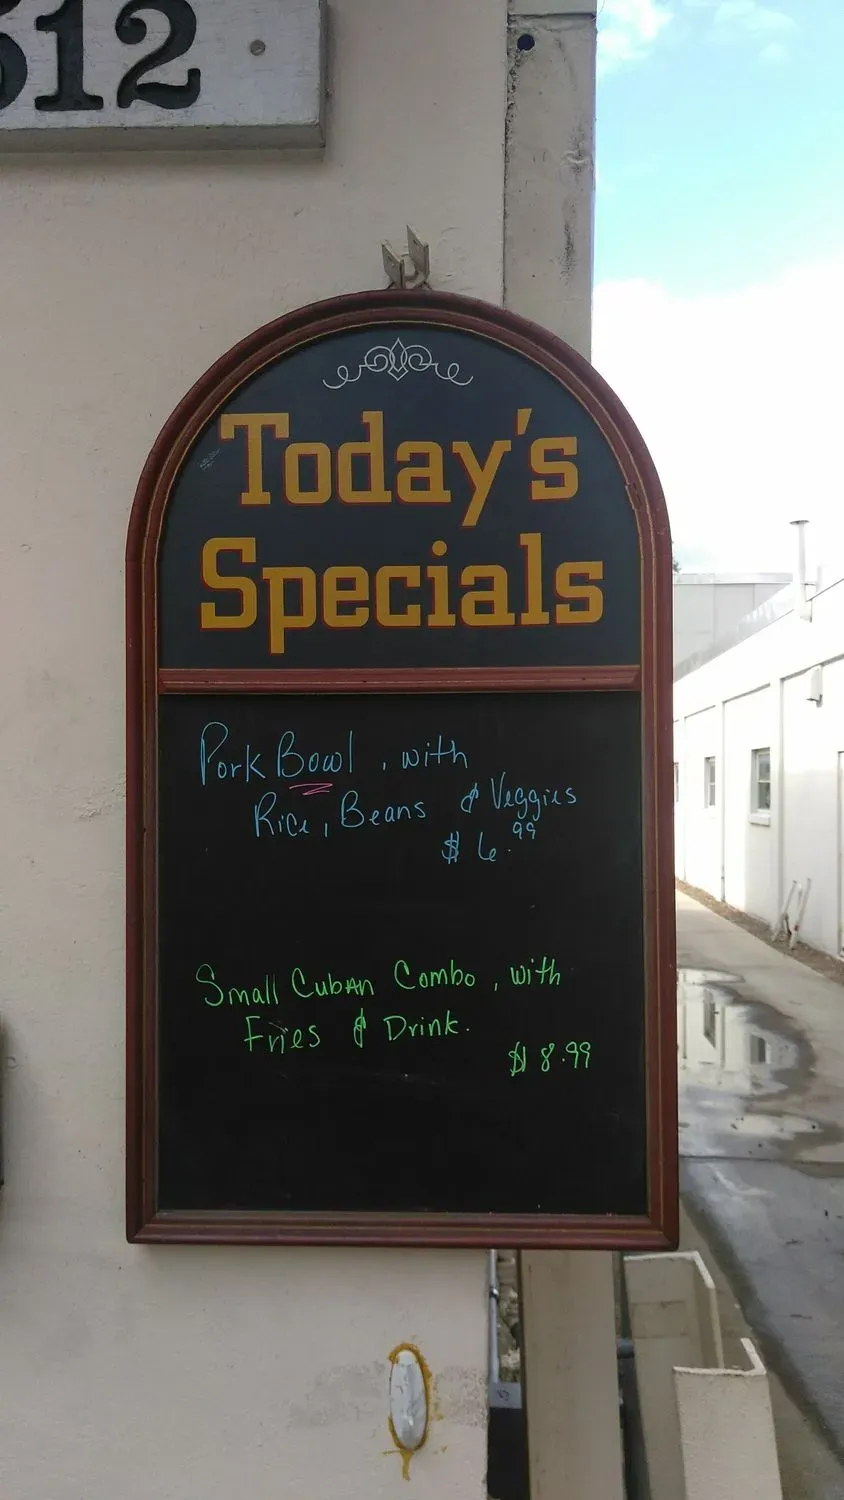 512
Today's
Specials
Pork Bowl, with
Rice, Beans & Veggies
$6.99
Small Cuban Combo, with
Fries & Drink.
$8.99